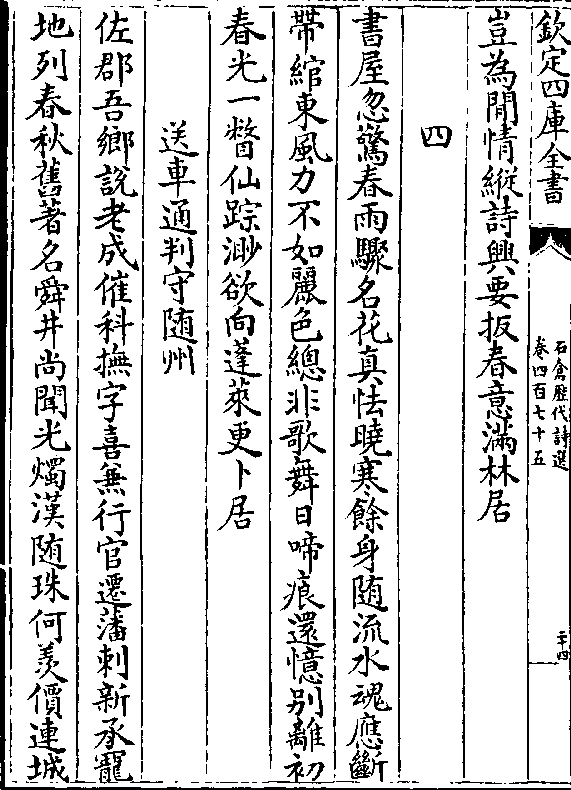 欽定四庫全書
石倉歷代詩選
卷四百七十五
二十四
豈為閒情縱詩興要扳春意滿林居
四
書屋忽驚春雨驟名花真怯曉寒餘身随流水魂應斷
帶綰東風力不如麗色總非歌舞日啼痕還憶别離初
春光一瞥仙踪渺欲向蓬萊更卜居
送車通判守随州
佐郡吾鄉說老成催科撫字喜兼行官遷藩刺新承寵
地列春秋舊著名舜井尚聞光燭漢随珠何羨價連城